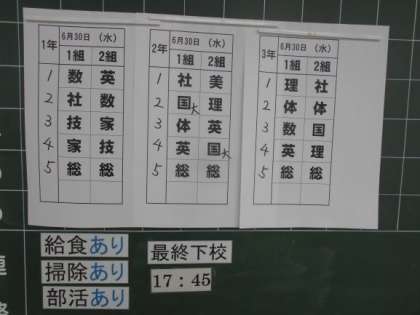 1年 6月30日 (水)
1組 2組
1 数 英
2 社 数
3 技 家
4 家 技
5 総 総
2年 6月30日 (水)
1組 2組
1 社 美
2 国大 理
3 体 英
4 英 国大
5 総 総
3年 6月30日 (水)
1組 2組
1 理 社
2 体 体
3 数 国
4 英 理
5 総 総
給食あり
掃除あり
部活あり
最終下校
17:45